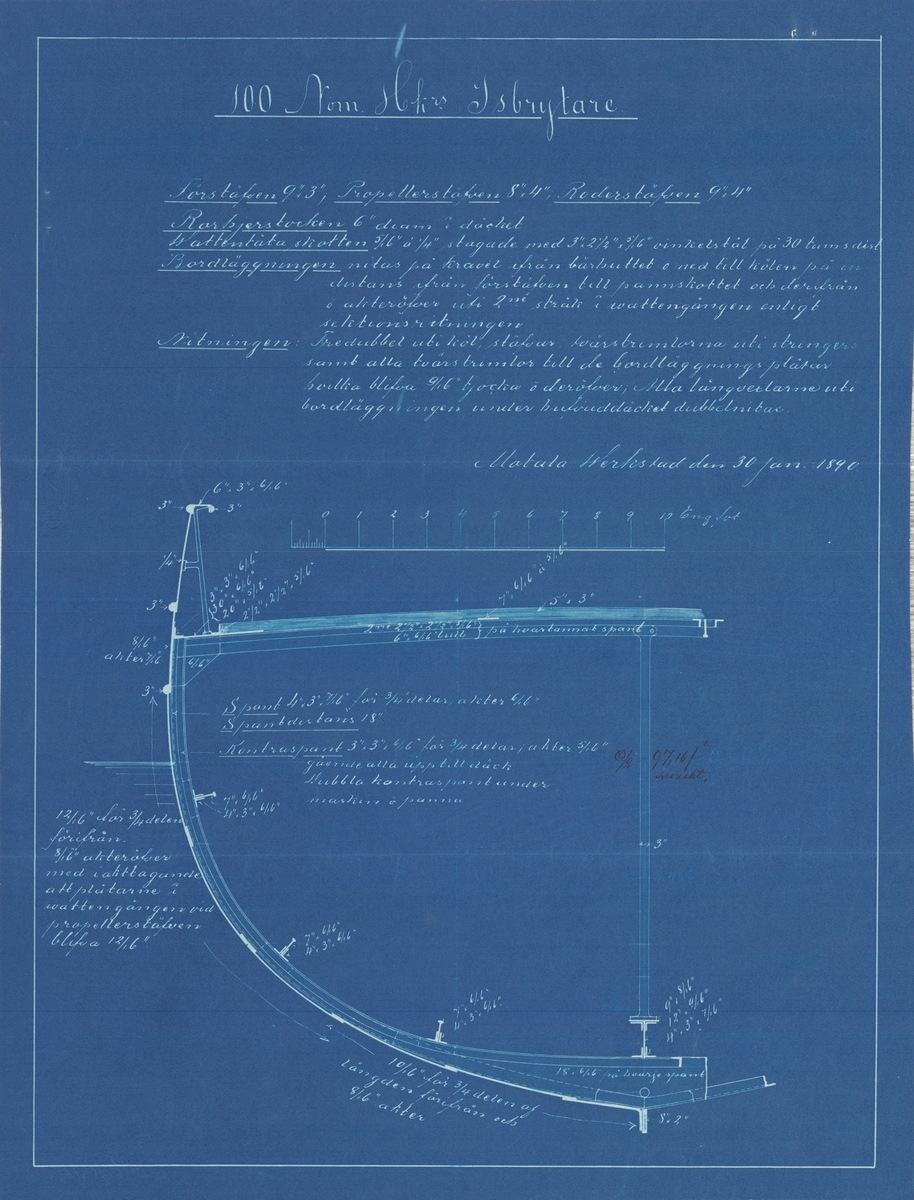 100 Nom. Hkrs Isbrytare.
Förstäfven 9"· 3", Propellerstäfven 8"· 4", Roderstäfven 9"· 4"
Rorhjerstocken 6" diam i däcket
Wattentäta skotten 5/16" á 1/4" stagade med 3"· 2 1/2"· 5/16" vinkelstål på 30 tums dist
Bordläggningen nitas på kravel ifrån bärhultet o ned till kölen på en
distans ifrån förstäfven till pannskottet och derifrån
o akteröfver uti 2ne stråk i wattengången enligt
sektionsritningen
Nitningen: Tredubbel uti köl, stäfvar, tvärstrimlorna uti stringers
samt alla tvärstrimlor till de bordläggnings plåtar
hvilka blifva 9/16" tjocka o deröfver; Alla långvertarne uti
bordläggningen under hufvuddäcket dubbelnitas.
Motala Werkstad den 30 Jan. 1890
6"· 3"· 6/16"
3" 3"
0 1 2 3 4 5 6 7 8 9 10 Eng. fot
1/4"
3"· 3"· 6/16"
30"· 6/16"
20"· 5/16"
2 1/2"· 2 1/2"· 5/16"
7"· 6/16" á 5/16"
5"· 3"
3"
6"· 6/16" bulb } på hvartannat spant
8/16"
akter 7/16"
6/16"
3"
Spant 4"· 3"· 7/16" för 3/4 delar akter 6/16"
Spantdistans 18"
Kontraspant 3"· 3"· 6/16" för 3/4 delar, akter 5/16"
gående alla upp till däck
Dubbla kontraspant under
maskin o panna
7"· 6/16"
4"· 3"· 6/16"
12/16" för 3/4 delen
förifrån.
8/16" akteröfver
med iakttagande
att plåtarne i
wattengången vid
propellerstäfven
blifva 12/16"
3"
7"· 6/16"
4"· 3"· 6/16"
7"· 6/16"
4"· 3"· 6/16"
9"· 8/16"
12"· 9/16"
4"· 3"· 7/16"
18"· 6/16" på hvarje spant
10/16" för 3/4 delen af
längden förifrån och
8/16" akter
8"· 2"